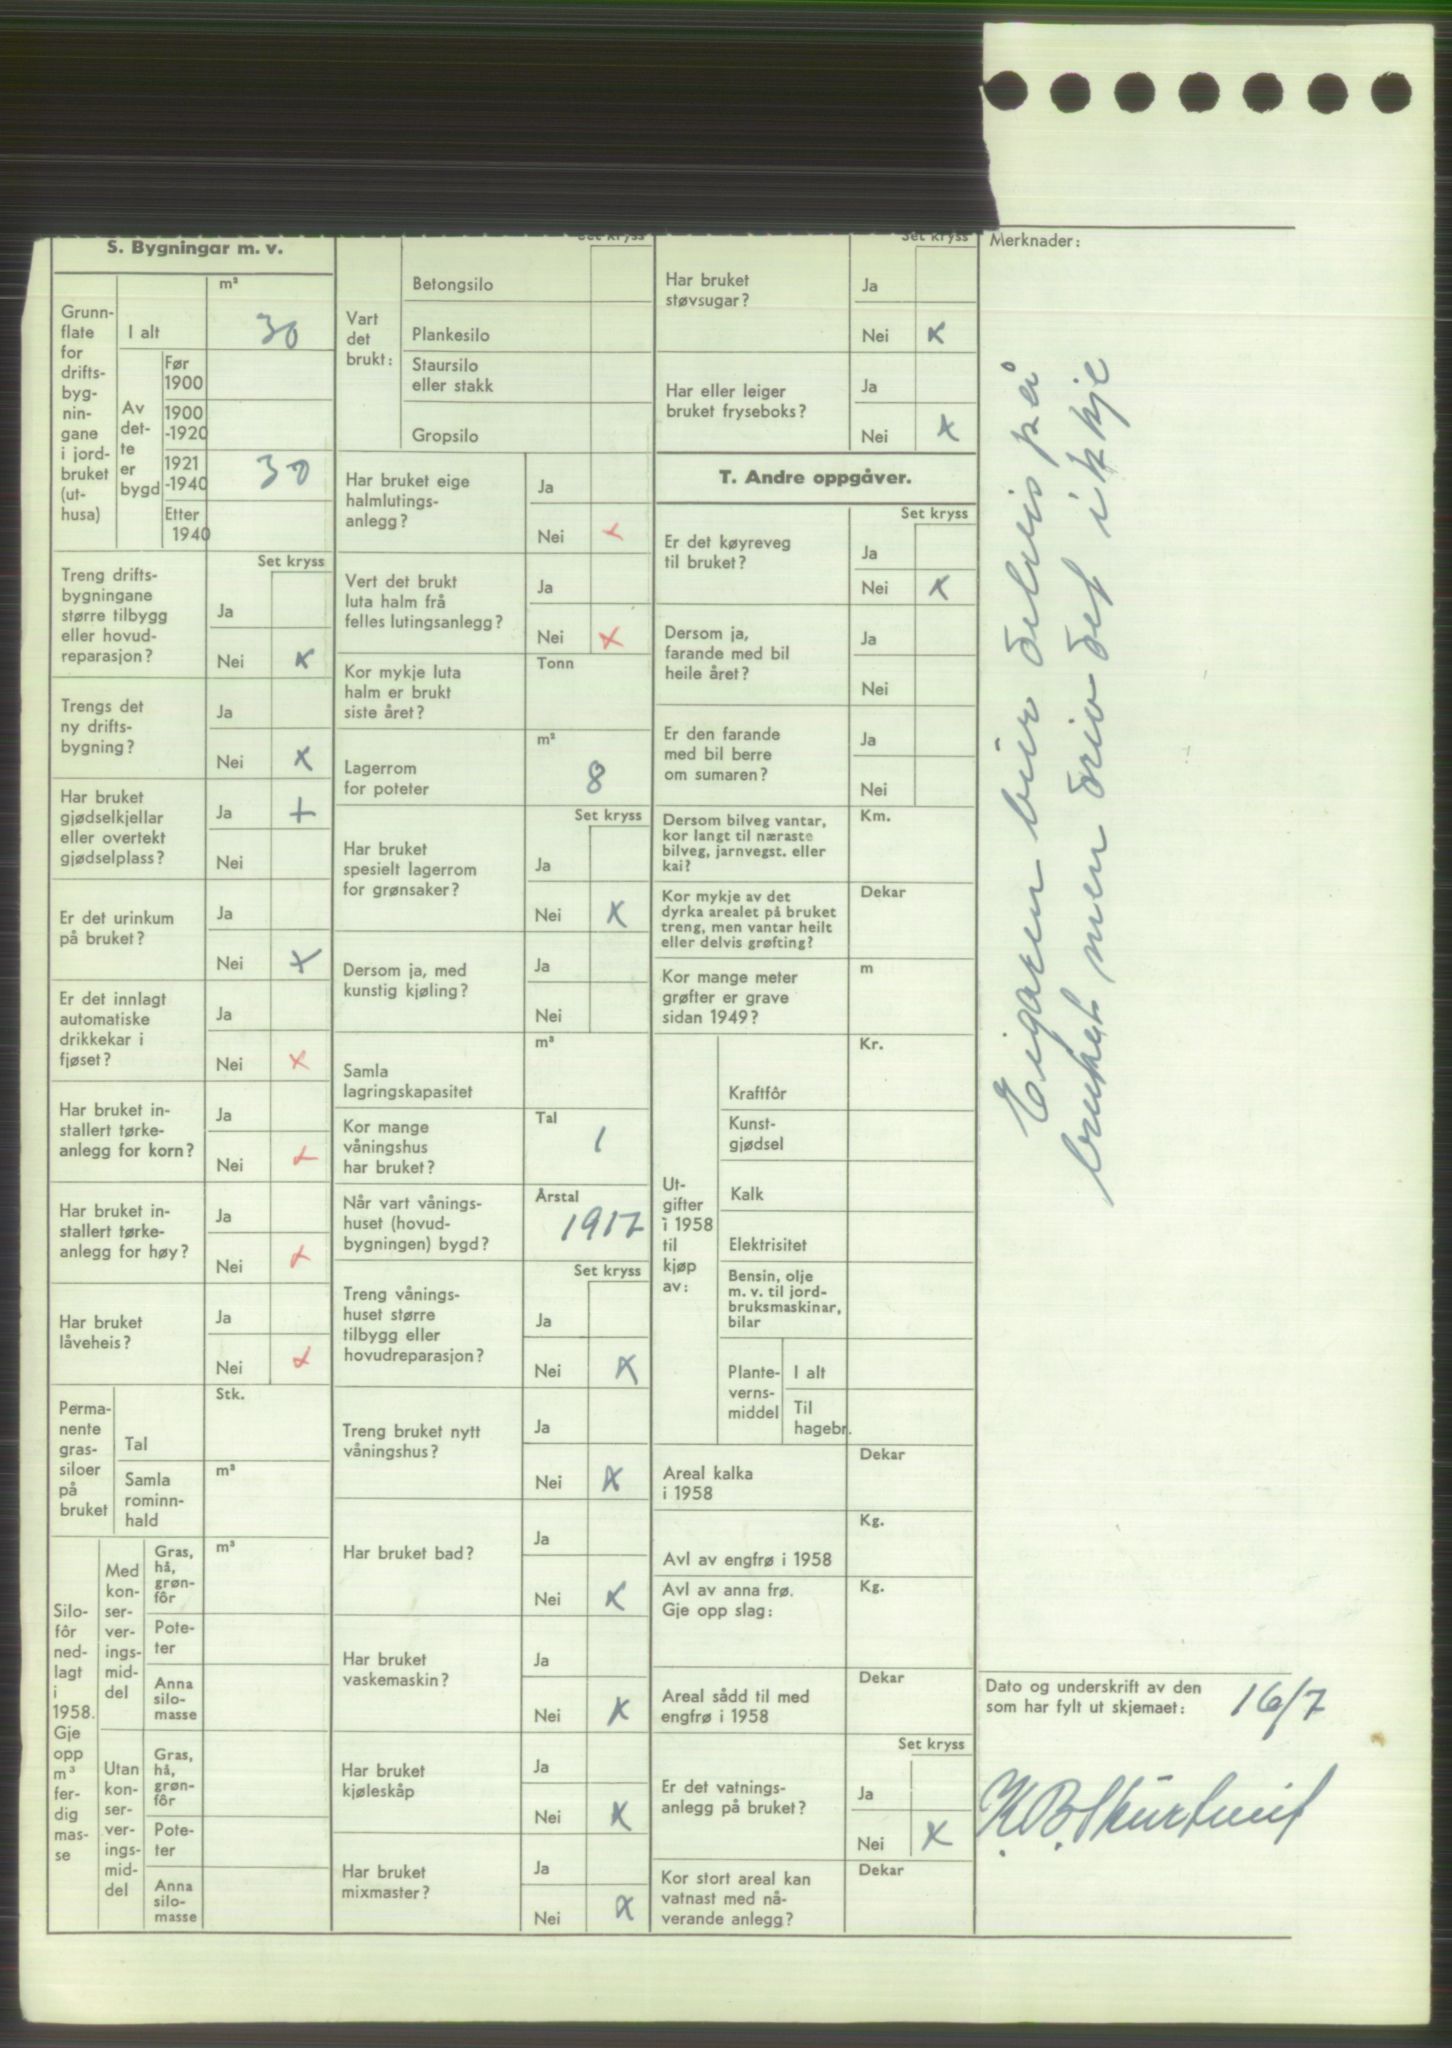 S. Bygningar m. v.
Grunn-
flate
for
drifts-
byg-
nin-
gane
i jord-
bruket
(ut-
husa)
m²
I alt 30
Av
det-
te
er
bygd
Før
1900
1900
-1920
1921
-1940 30
Etter
1940
Set kryss
Treng drifts-
bygningane
større tilbygg
eller hovud-
reparasjon?
Ja
Nei x
Trengs det
ny drifts-
bygning?
Ja
Nei x
Har bruket
gjødselkjellar
eller overtekt
gjødselplass?
Ja +
Nei
Er det urinkum
på bruket?
Ja
Nei x
Er det innlagt
automatiske
drikkekar i
fjøset?
Ja
Nei x
Har bruket in-
stallert tørke-
anlegg for korn?
Ja
Nei x
Har bruket in-
stallert tørke-
anlegg for høy?
Ja
Nei x
Har bruket
låveheis?
Ja
Nei x
Perma-
nente
gras-
siloer
på
bruket
Stk.
Tal
m³
Samla
rominn-
hald
Silo-
fôr
ned-
lagt
i
1958.
Gje
opp
m³
fer-
dig
mas-
se
Med
kon-
ser-
ver-
ings-
mid-
del
Gras,
hå,
grøn-
fôr
m³
Pote-
ter
Anna
silo-
masse
Utan
kon-
ser-
ver-
ings-
mid-
del
Gras,
hå,
grøn-
fôr
Pote-
ter
Anna
silo-
masse
Set kryss
Vart
det
brukt:
Betongsilo
Plankesilo
Staursilo
eller stakk
Gropsilo
Har bruket eige
halmlutings-
anlegg?
Ja
Nei x
Vert det brukt
luta halm frå
felles lutingsanlegg?
Ja
Nei x
Kor mykje luta
halm er brukt
siste året?
Tonn
Lagerrom
for poteter
m²
8
Set kryss
Har bruket
spesielt lagerrom
for grønsaker?
Ja
Nei x
Dersom ja, med
kunstig kjøling?
Ja
Nei
Samla
lagringskapasitet
m³
Kor mange
våningshus
har bruket?
Tal
1
Når vart vånings-
huset (hovud-
bygningen) bygd?
Årstal
1917
Set kryss
Treng vånings-
huset større
tilbygg eller
hovudreparasjon?
Ja
Nei x
Treng bruket nytt
våningshus?
Ja
Nei x
Har bruket bad?
Ja
Nei x
Har bruket
vaskemaskin?
Ja
Nei x
Har bruket
kjøleskåp
Ja
Nei x
Har bruket
mixmaster?
Ja
Nei x
Set kryss
Har bruket
støvsugar?
Ja
Nei x
Har eller leiger
bruket fryseboks?
Ja
Nei x
T. Andre oppgåver.
Set kryss
Er det køyreveg
til bruket?
Ja
Nei x
Dersom ja,
farande med bil
heile året?
Ja
Nei
Er den farande
med bil berre
om sumaren?
Ja
Nei
Dersom bilveg vantar,
kor langt til næraste
bilveg, jarnvegst. eller
kai?
Km.
Kor mykje av det
dyrka arealet på bruket
treng, men vantar heilt
eller delvis grøfting?
Dekar
Kor mange meter
grøfter er grave
sidan 1949?
m
Ut-
gifter
i 1958
til
kjøp
av:
Kr.
Kraftfôr
Kunst-
gjødsel
Kalk
Elektrisitet
Bensin, olje
m. v. til jord-
bruksmaskinar,
bilar
Plante-
verns-
middel
I alt
Til
hagebr.
Areal kalka
i 1958
Dekar
Avl av engfrø i 1958
Kg.
Avl av anna frø.
Gje opp slag:
Kg.
Areal sådd til med
engfrø i 1958
Dekar
Set kryss
Er det vatnings-
anlegg på bruket?
Ja
Nei x
Kor stort areal kan
vatnast med nå-
verande anlegg?
Dekar
Merknader:
Eigaren bur delvis på
bruket men driv det ikkje
Dato og underskrift av den
som har fylt ut skjemaet: 16/7
K. B. Skurtveit